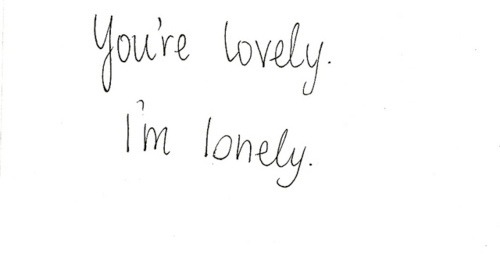 You're lovely.
I'm lonely.